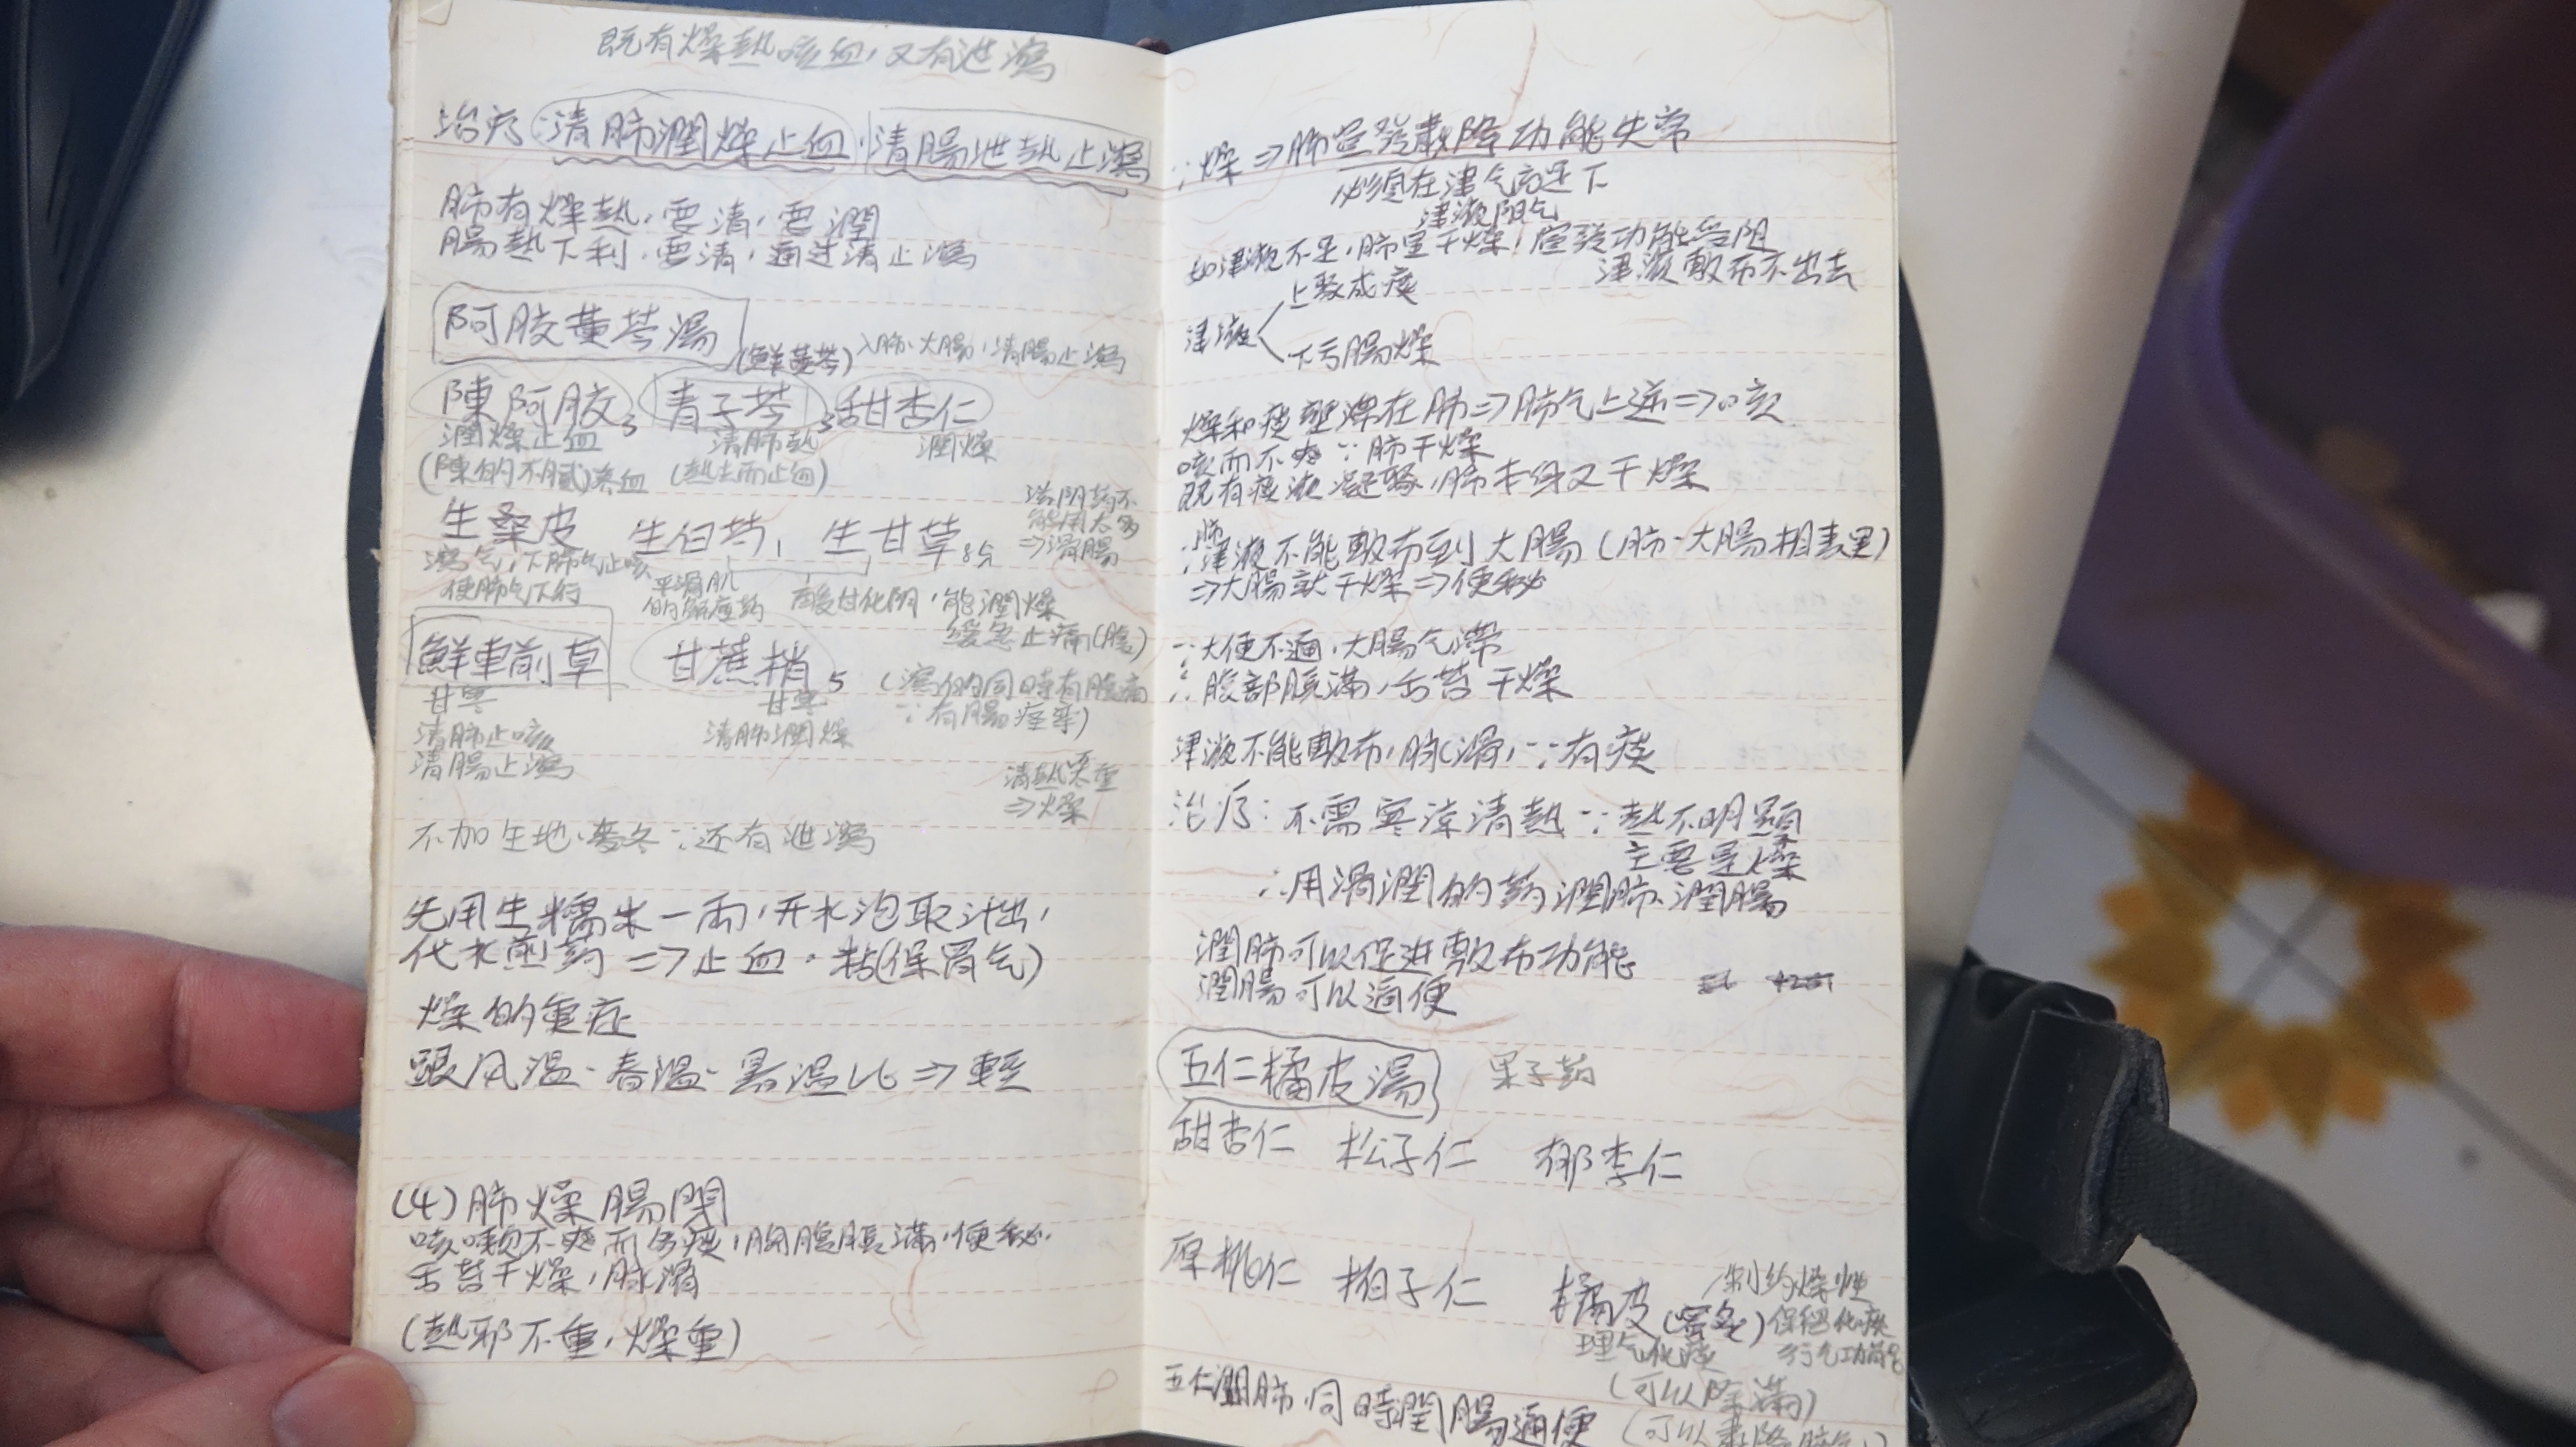 既有燥熱咳血，又有泄瀉
治疗：清肺潤燥止血，清腸泄熱止瀉
肺有燥熱，要清，要潤
腸熱下利，要清，通过清止瀉
阿胶黄芩湯
(鮮黄芩) 入肺、大腸，清腸止瀉
陳阿胶3 青子芩3 甜杏仁
潤燥止血 清肺熱 潤燥
(陳的不膩)养血 (熱去而止血)
生桑皮 生白芍1 生甘草8分
滋阴药不
能用太多
⇒滑腸
瀉气，下肺气止咳
使肺气下行
平滑肌
的解痙药
酸甘化阴，能潤燥
緩急止痛(腹)
鮮車前草 甘蔗梢5
(瀉的同時有腹痛
∵有腸痙挛)
甘寒 甘寒
清肺止咳 清肺潤燥
清腸止瀉
清熱太重
⇒燥
不加生地、麥冬∵还有泄瀉
先用生糯米一兩，开水泡取汁出，
代水煎药⇒止血、粘(保胃气)
燥的重症
跟风温、春温、暑温比⇒輕
(4)肺燥腸閉
咳嗽不爽而多痰，胸腹脹滿，便秘，
舌苔干燥，脉滑
(熱邪不重，燥重)
∵燥⇒肺宣发肅降功能失常
必須在津气充足下
津液阳气
如津液不足，肺里干燥，宣发功能受阻
津液敷布不出去
津液
上聚成痰
下亏腸燥
燥和痰壅滞在肺⇒肺气上逆⇒咳
咳而不爽∵肺干燥
既有痰液凝聚，肺本身又干燥
∴肺津液不能敷布到大腸(肺、大腸相表里)
⇒大腸就干燥⇒便秘
∵大便不通，大腸气滞
∴腹部脹滿，舌苔干燥
津液不能敷布，脉滑，∵有痰
治疗：不需寒涼清熱∵熱不明顯
主要是燥
∴用滑潤的药潤肺、潤腸
潤肺可以促进敷布功能
潤腸可以通便
五仁橘皮湯 果子药
甜杏仁 松子仁 郁李仁
原桃仁 柏子仁 橘皮(蜜炙)
制约燥性
保留化痰
行气功能
理气化痰
(可以除滿)
五仁潤肺，同時潤腸通便